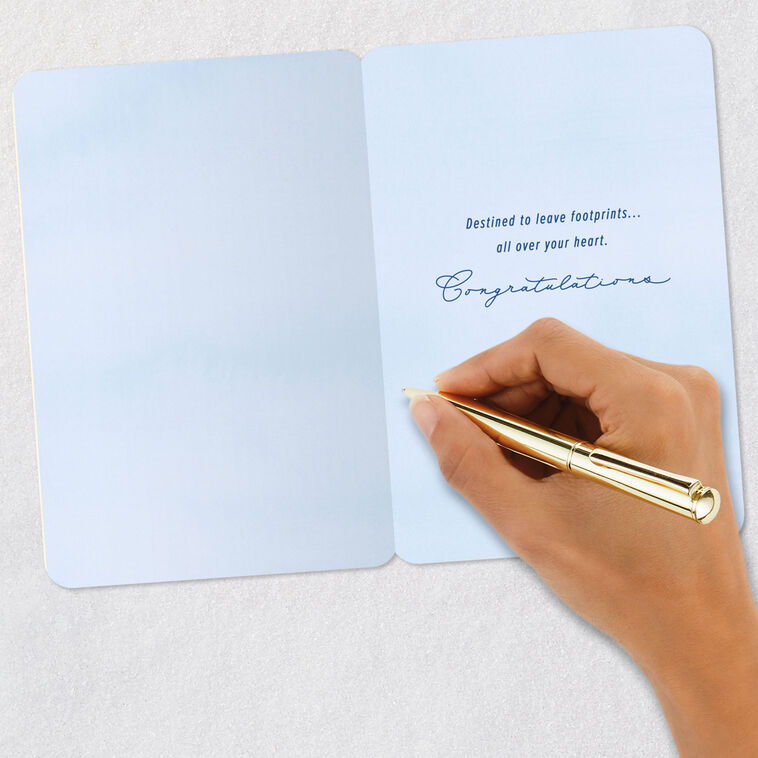 Destined to leave footprints...
all over your heart.
Congratulations